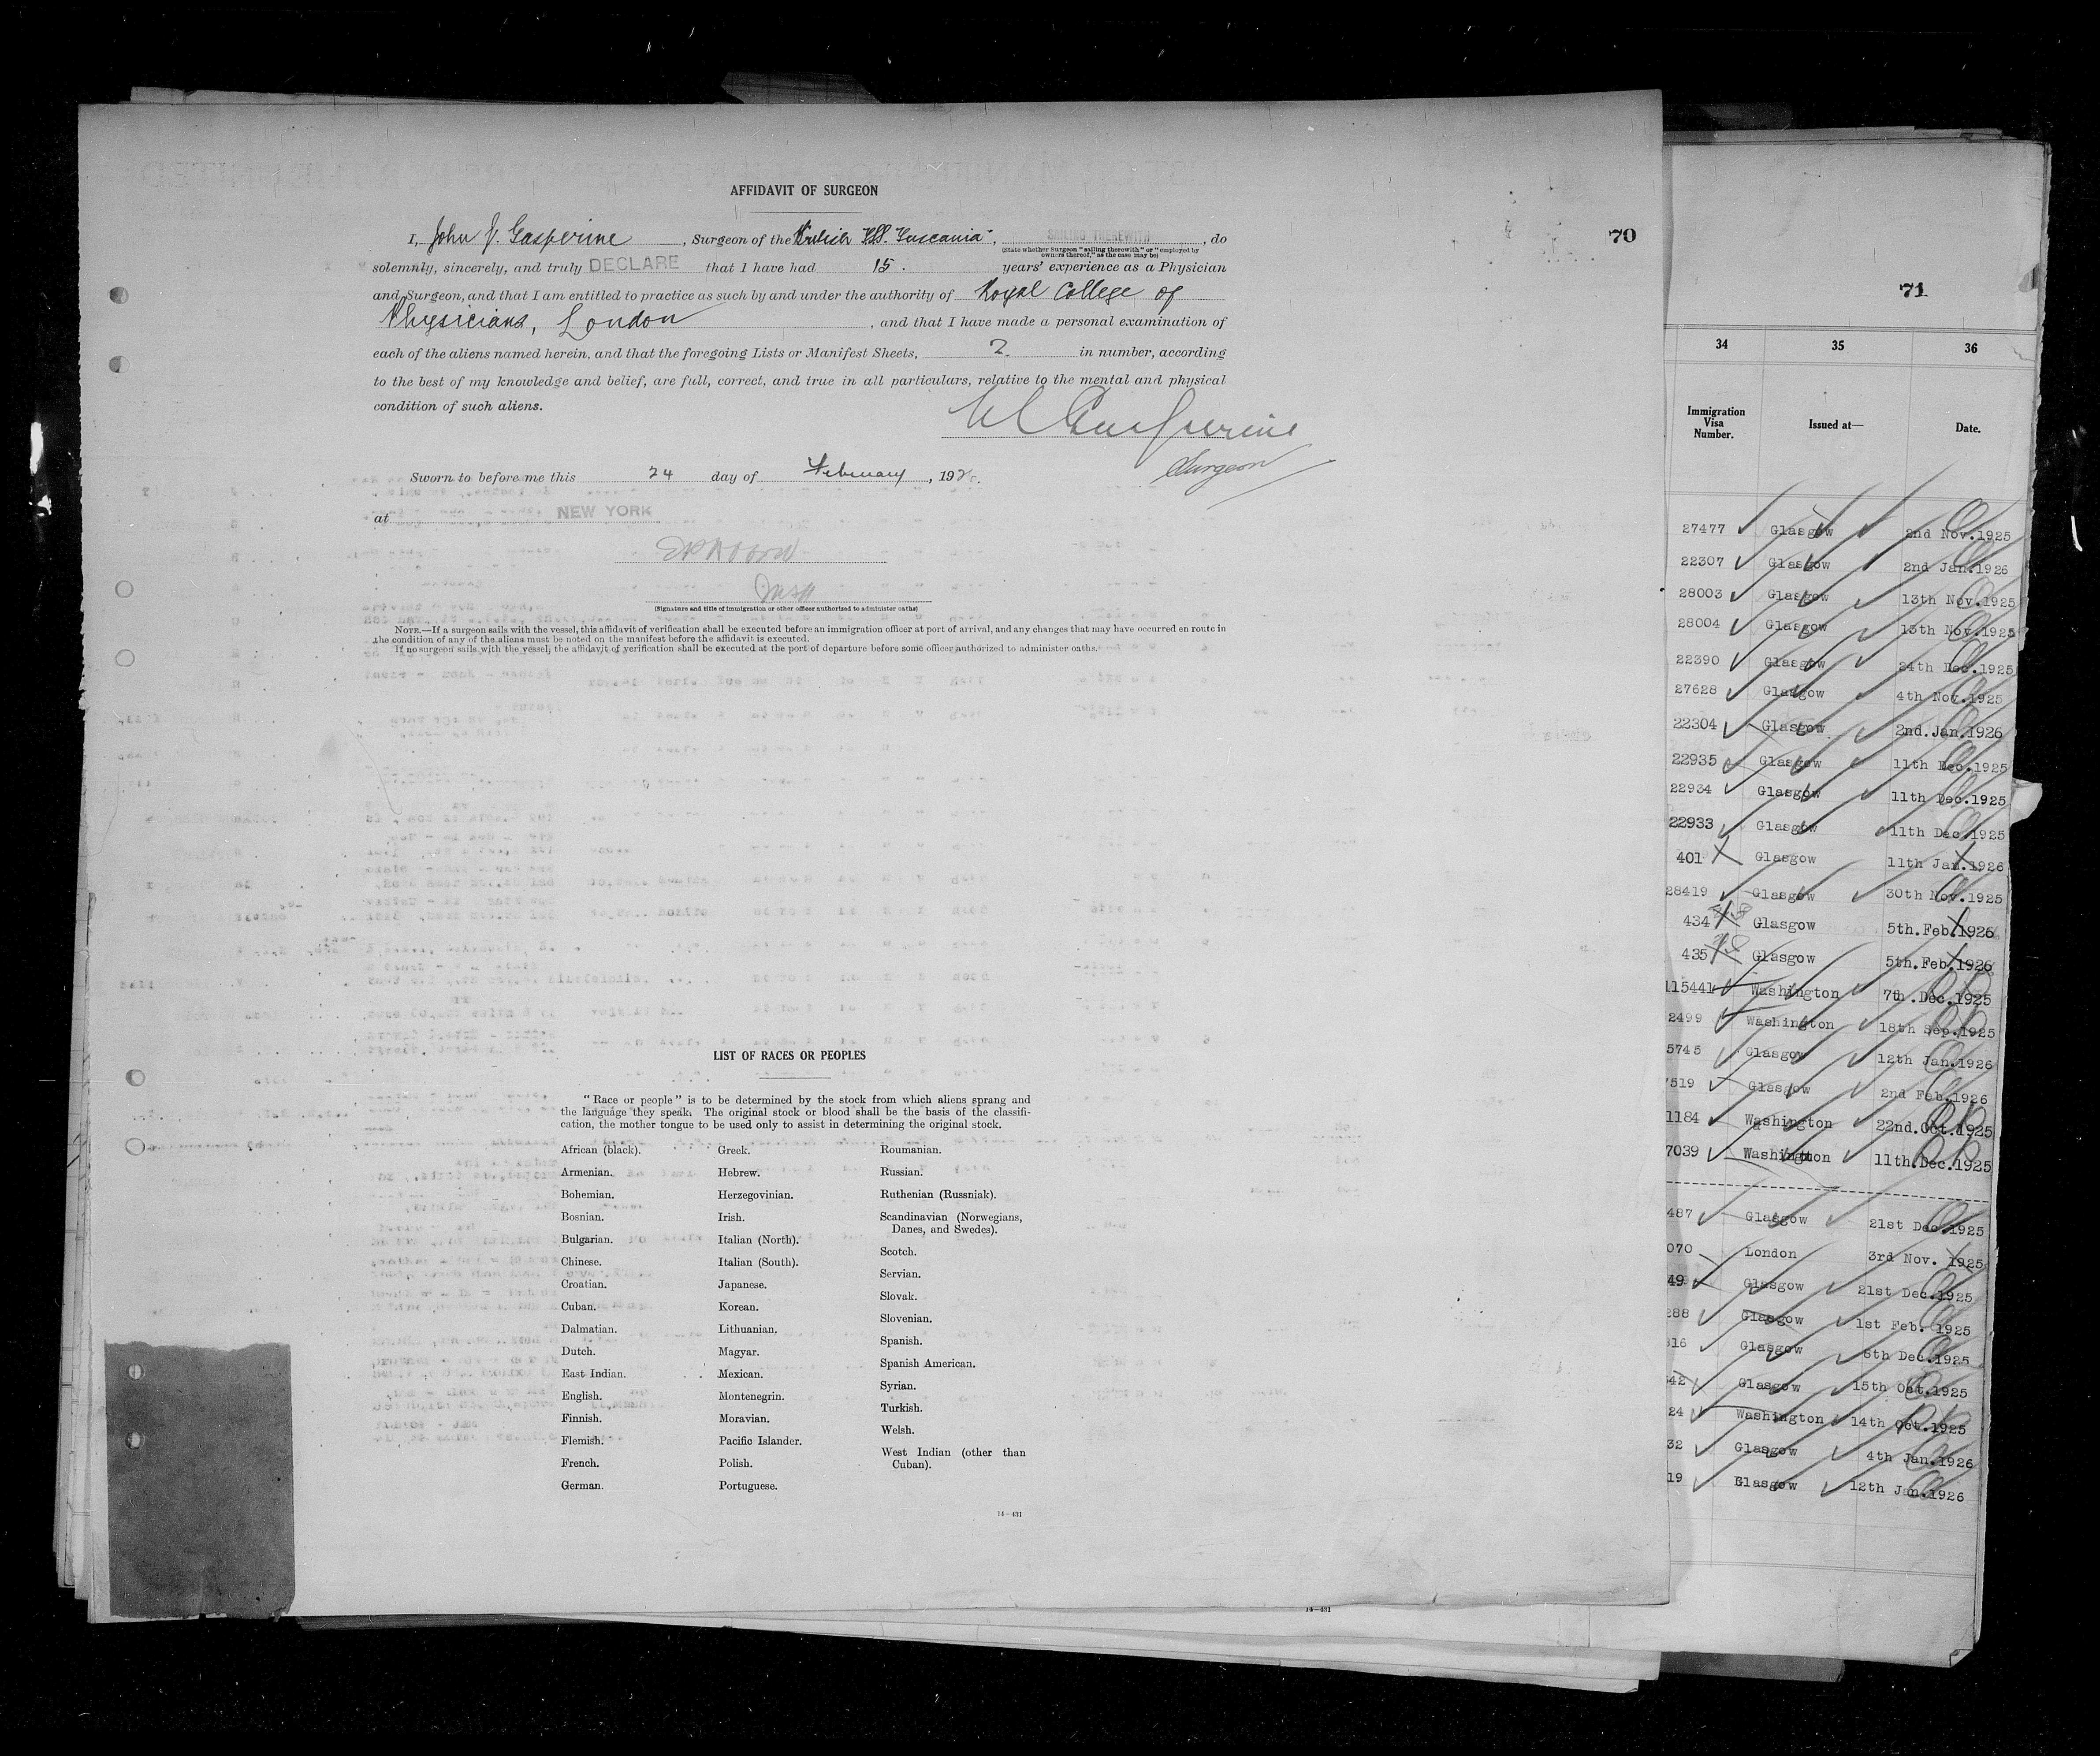 AFFIDAVIT OF SURGEON
70
I, John J. Gasperine, Surgeon of the British SS. Tuscania, SAILING THEREWITH, do
(State whether Surgeon "sailing therewith" or "employed by
owners thereof," as the case may be)
solemnly, sincerely, and truly DECLARE that I have had 15. years' experience as a Physician
and Surgeon, and that I am entitled to practice as such by and under the authority of Royal College of
Physicians, London, and that I have made a personal examination of
each of the aliens named herein, and that the foregoing Lists or Manifest Sheets, 2. in number, according
to the best of my knowledge and belief, are full, correct, and true in all particulars, relative to the mental and physical
condition of such aliens.
Gasperine
Surgeon
Sworn to before me this 24 day of February, 192
at NEW YORK
(Signature and title of immigration or other officer authorized to administer oaths)
NOTE.—If a surgeon sails with the vessel, this affidavit of verification shall be executed before an immigration officer at port of arrival, and any changes that may have occurred en route in
the condition of any of the aliens must be noted on the manifest before the affidavit is executed.
If no surgeon sails with the vessel, the affidavit of verification shall be executed at the port of departure before some officer authorized to administer oaths.
LIST OF RACES OR PEOPLES
"Race or people" is to be determined by the stock from which aliens sprang and
the language they speak. The original stock or blood shall be the basis of the classifi-
cation, the mother tongue to be used only to assist in determining the original stock.
African (black).
Armenian.
Bohemian.
Bosnian.
Bulgarian.
Chinese.
Croatian.
Cuban.
Dalmatian.
Dutch.
East Indian.
English.
Finnish.
Flemish.
French.
German.
Greek.
Hebrew.
Herzegovinian.
Irish.
Italian (North).
Italian (South).
Japanese.
Korean.
Lithuanian.
Magyar.
Mexican.
Montenegrin.
Moravian.
Pacific Islander.
Polish.
Portuguese.
Roumanian.
Russian.
Ruthenian (Russniak).
Scandinavian (Norwegians,
Danes, and Swedes).
Scotch.
Servian.
Slovak.
Slovenian.
Spanish.
Spanish American.
Syrian.
Turkish.
Welsh.
West Indian (other than
Cuban).
14—431
14—431
71
34 35 36
Immigration
Visa
Number.
Issued at—
Date.
27477 Glasgow 2nd Nov.1925
22307 Glasgow 2nd Jan.1926
28003 Glasgow 13th Nov.1925
28004 Glasgow 13th Nov.1925
22390 Glasgow 24th Dec.1925
27628 Glasgow 4th Nov.1925
22304 Glasgow 2nd.Jan.1926
22935 Glasgow 11th Dec.1925
22934 Glasgow 11th Dec.1925
22933 Glasgow 11th Dec.1925
401 Glasgow 11th Jan.1926
28419 Glasgow 30th Nov.1925
434 Glasgow 5th.Feb.1926
435 Glasgow 5th.Feb.1926
115441 Washington 7th.Dec.1925
2499 Washington 18th Sep.1925
5745 Glasgow 12th Jan.1926
7519 Glasgow 2nd Feb.1926
1184 Washington 22nd.Oct.1925
7039 Washington 11th.Dec.1925
487 Glasgow 21st Dec.1925
070 London 3rd Nov. 1925
49 Glasgow 21st Dec.1925
288 Glasgow 1st Feb. 1925
316 Glasgow 8th Dec.1925
42 Glasgow 15th Oct.1925
24 Washington 14th Oct.1925
32 Glasgow 4th Jan.1926
19 Glasgow 12th Jan.1926